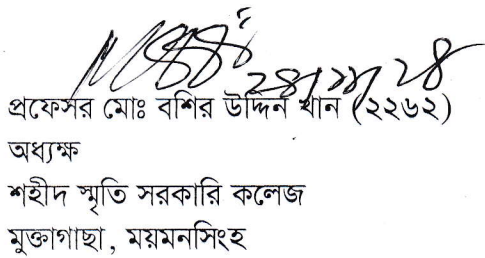 ২৪/১১/২৪
প্রফেসর মোঃ বশির উদ্দিন খান (২২৬২)
অধ্যক্ষ
শহীদ স্মৃতি সরকারি কলেজ
মুক্তাগাছা, ময়মনসিংহ